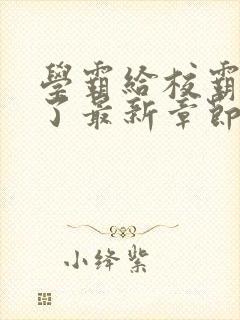 學霸給校霸
了最新章節
小绛紫